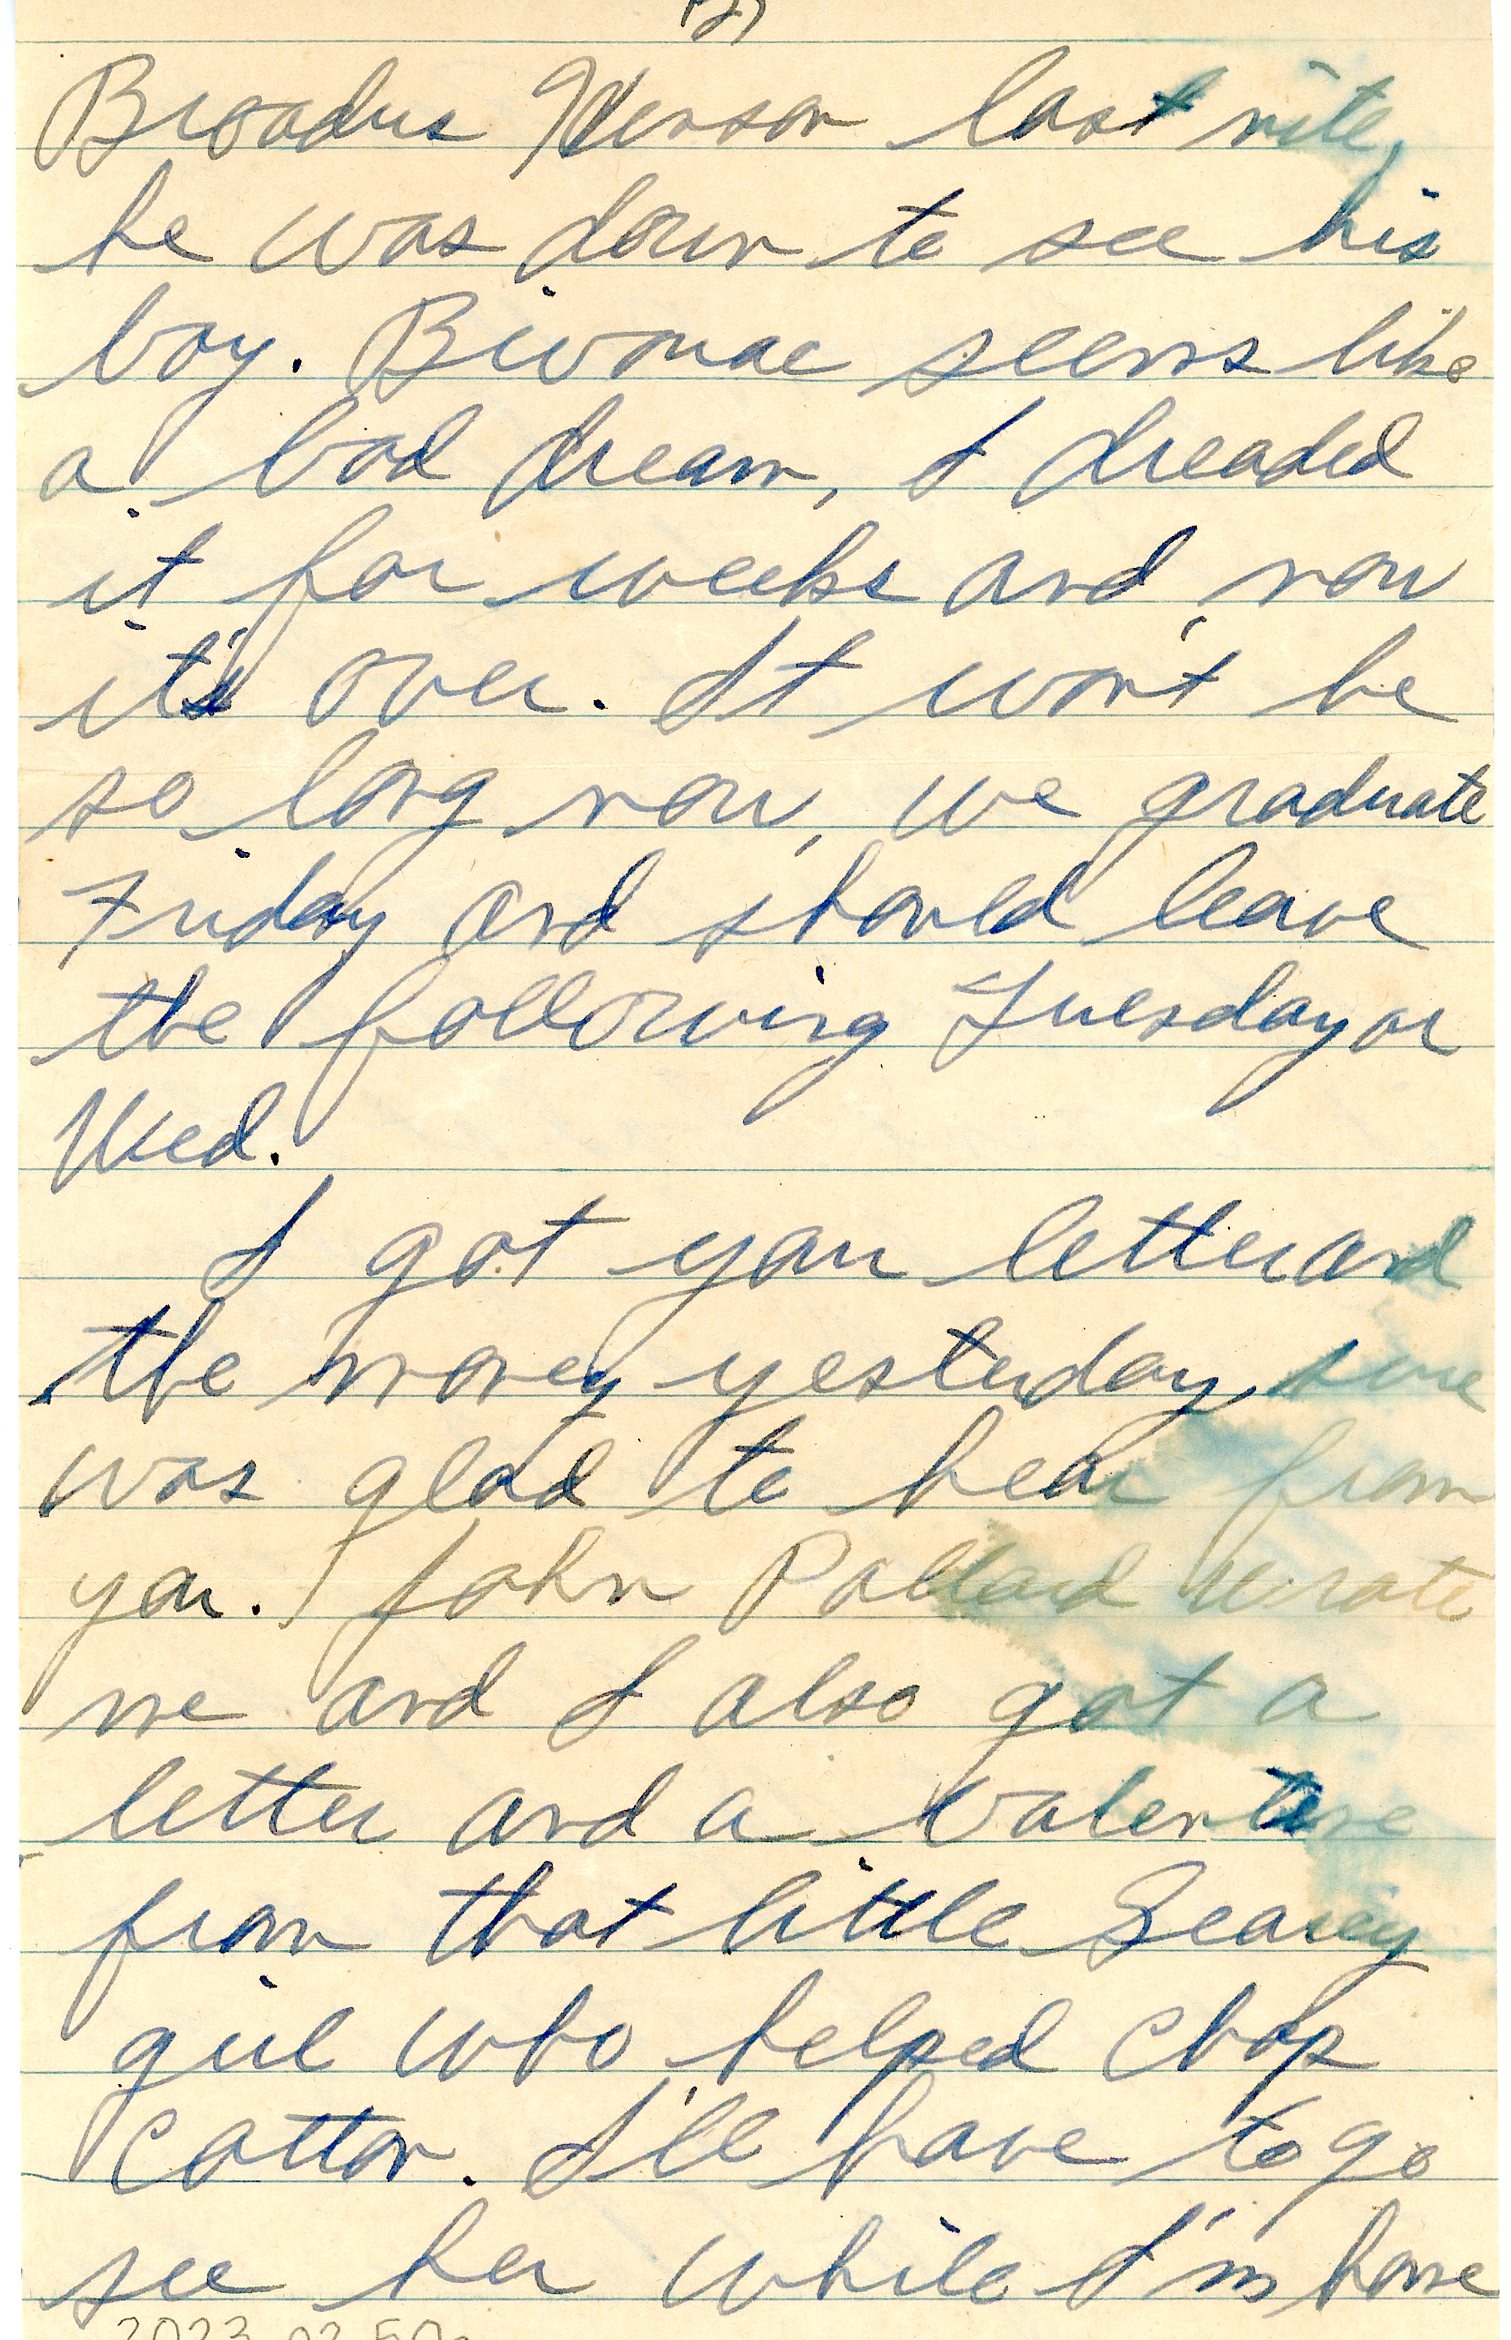 (2)
Broadus Henson last nite,
he was down to see his
boy. Bivouac seems like
a bad dream, I dreaded
it for weeks and now
it's over. It won't be
so long now, we graduate
Friday and should leave
the following Tuesday or
Wed.
I got your letter and
the money yesterday, sure
was glad to hear from
you. John Pollard wrote
me and I also got a
letter and a valentine
from that little Searcy
girl who helped chop
cotton. I'll have to go
see her while I'm home